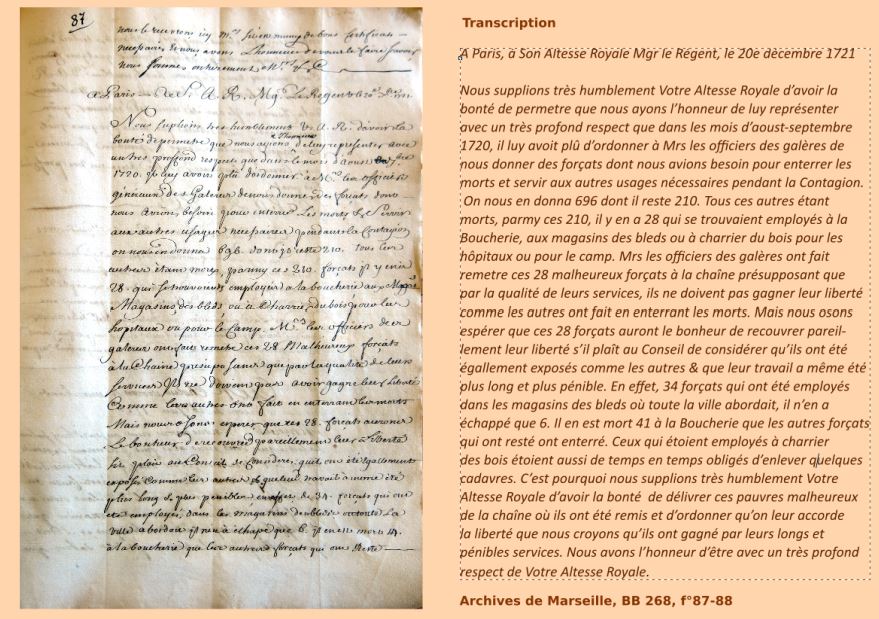 87
nous
nous sommes entierement
a Paris
Nous suplions tres humblement V. A. R. d'avoir la
bonté de permetre que nous ayons de luy representer avec
un tres profond respect que dans le mois d'aoust
1720. il luy avoit plû d'ordonner a Mrs les officiers
des Galeres de nous donner des forcats dont
nous avions besoin pour enterrer Les morts & servir
aux autres usages necessaires pendant la Contagion
on nous en donna 696. dont il reste 210. tous les
autres étant morts, parmy ces 210. forcats il y en a
28. qui se trouvaient employez a la boucherie aux
Magasins des bleds ou a Charrier du bois pour les
hopitaux ou pour le Camp. Mrs les officiers des
galeres ont fait remetre ces 28 Malheureux forcats
a la Chaine presuposant que par la qualité de leurs
services ils ne doivent pas avoir gagné leur liberté
Comme les autres ont fait en enterrant les morts
Mais nous osons esperer que ces 28. forcats auront
Le bonheur de recouvrer pareillement leur Liberté
s'il plait au Conseil de Considerer qu'ils ont été egallement
exposés Comme les autres & que leur travail a meme été
plus long & plus penible en effet de 34. forcats qui ont
été employez dans les magasins des bleds ou toute La
Ville abordoit il n'en a échapé que 6. il en est mort 41.
a la boucherie que les autres forcats qui ont resté
Transcription
A Paris, à Son Altesse Royale Mgr le Régent, le 20e décembre 1721
Nous supplions très humblement Votre Altesse Royale d'avoir la
bonté de permetre que nous ayons l'honneur de luy représenter
avec un très profond respect que dans les mois d'aoust-septembre
1720, il luy avoit plû d'ordonner à Mrs les officiers des galères de
nous donner des forçats dont nous avions besoin pour enterrer les
morts et servir aux autres usages nécessaires pendant la Contagion.
On nous en donna 696 dont il reste 210. Tous ces autres étant
morts, parmy ces 210, il y en a 28 qui se trouvaient employés à la
Boucherie, aux magasins des bleds ou à charrier du bois pour les
hôpitaux ou pour le camp. Mrs les officiers des galères ont fait
remetre ces 28 malheureux forçats à la chaîne présupposant que
par la qualité de leurs services, ils ne doivent pas gagner leur liberté
comme les autres ont fait en enterrant les morts. Mais nous osons
espérer que ces 28 forçats auront le bonheur de recouvrer pareil-
lement leur liberté s'il plaît au Conseil de considérer qu'ils ont été
égallement exposés comme les autres & que leur travail a même été
plus long et plus pénible. En effet, 34 forçats qui ont été employés
dans les magasins des bleds où toute la ville abordait, il n'en a
échappé que 6. Il en est mort 41 à la Boucherie que les autres forçats
qui ont resté ont enterré. Ceux qui étoient employés à charrier
des bois étoient aussi de temps en temps obligés d'enlever quelques
cadavres. C'est pourquoi nous supplions très humblement Votre
Altesse Royale d'avoir la bonté de délivrer ces pauvres malheureux
de la chaîne où ils ont été remis et d'ordonner qu'on leur accorde
la liberté que nous croyons qu'ils ont gagné par leurs longs et
pénibles services. Nous avons l'honneur d'être avec un très profond
respect de Votre Altesse Royale.
Archives de Marseille, BB 268, f°87-88